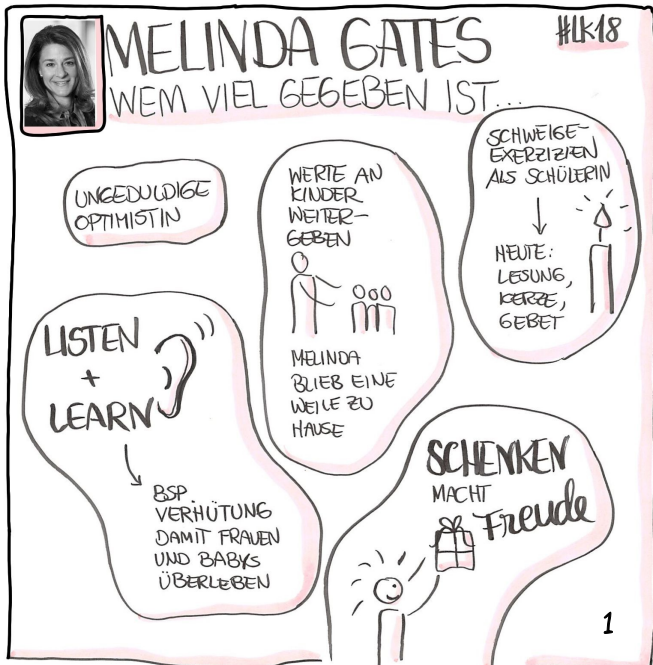 MELINDA GATES
#LK18
WEM VIEL GEGEBEN IST...
UNGEDULDIGE
OPTIMISTIN
WERTE AN
KINDER
WEITER-
GEBEN
MELINDA
BLIEB EINE
WEILE ZU
HAUSE
SCHWEIGE-
EXERZIZIEN
ALS SCHÜLERIN
HEUTE:
LESUNG,
KERZE,
GEBET
LISTEN
+
LEARN
BSP.
VERHÜTUNG
DAMIT FRAUEN
UND BABYS
ÜBERLEBEN
SCHENKEN
MACHT
Freude
1